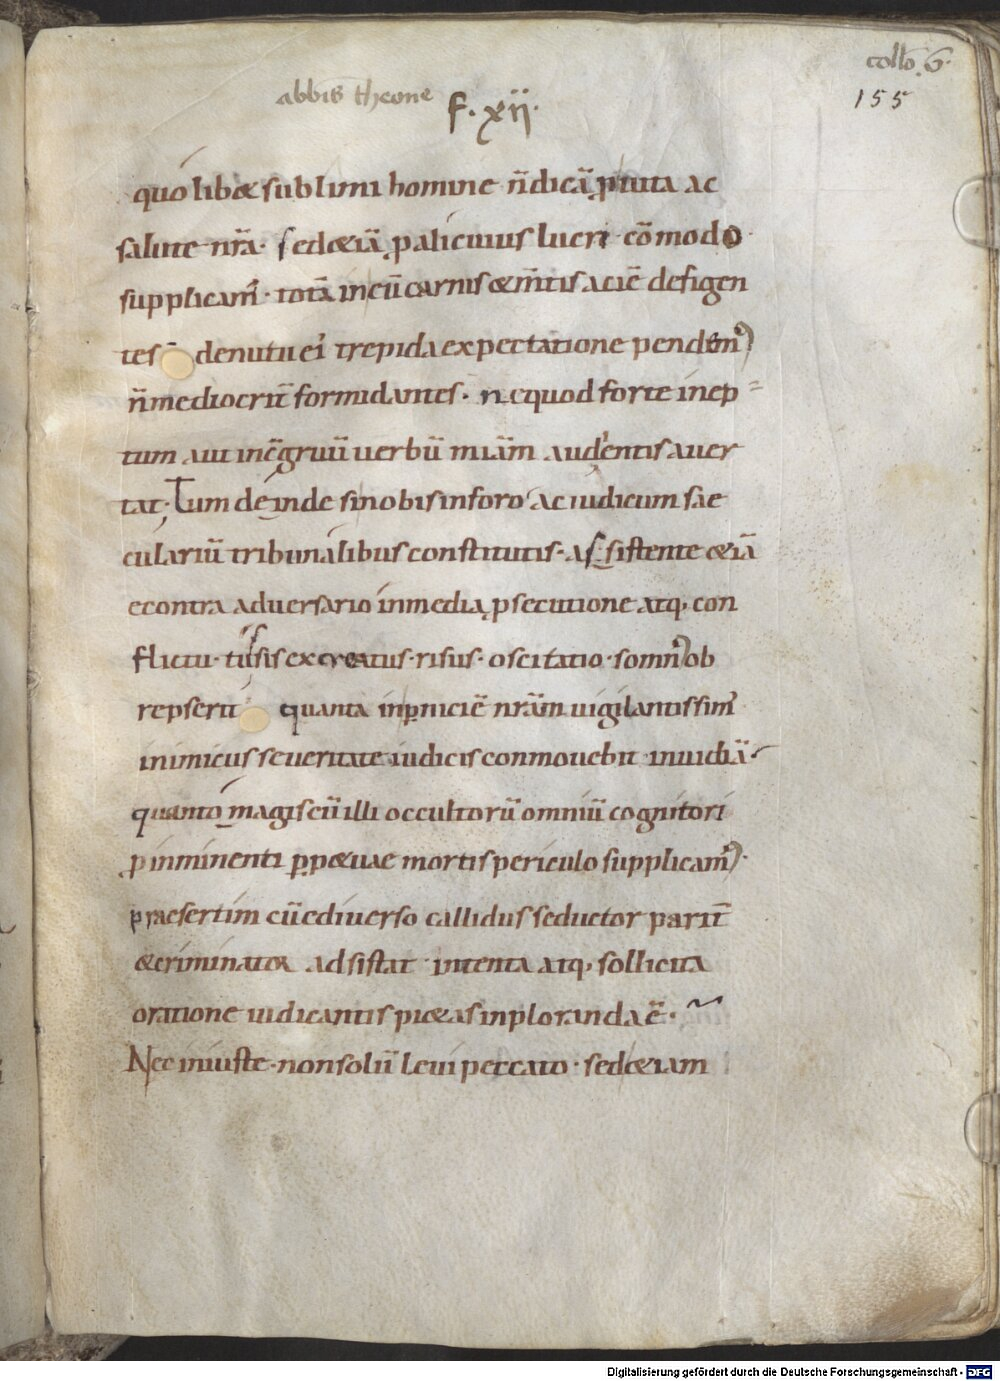 collo 6.
155
abbis theone
f. xij.
quolibet sublimi homine n̄ dicā p uita ac
salute nr̄a. sed etiā p alicuius lucri cōmodo
supplicam̄. totā in eū carnis et m̄tis aciē defigen
tes de nutu ei trepida expectatione pendem̄
n̄ mediocrit̄ formidantes. ne quod forte inep
tum aut incōgruū uerbū miām audientis auer
tat; Tum deinde si nobis in foro ac iudicum sae
culariū tribunalibus constitutis. assistente etiā
econtra aduersario in media psecutione atq; con
flictu. tussis excreatus. risus. oscitatio. somn ob
repserit quanta in pniciē nr̄am uigilantissim̄
inimicus seueritate iudicis conmouebit inuidiā.
quanto magis cū illi occultorū omniū cognitori
p inminenti ppetuae mortis periculo supplicam̄.
praesertim cū e diuerso callidus seductor parit̄
et criminator adsistat intenta atq; sollicita
oratione iudicantis pietas inploranda ē.
Nec iniuste. non solū leui peccato. sed etiam
Digitalisierung gefördert durch die Deutsche Forschungsgemeinschaft - DFG